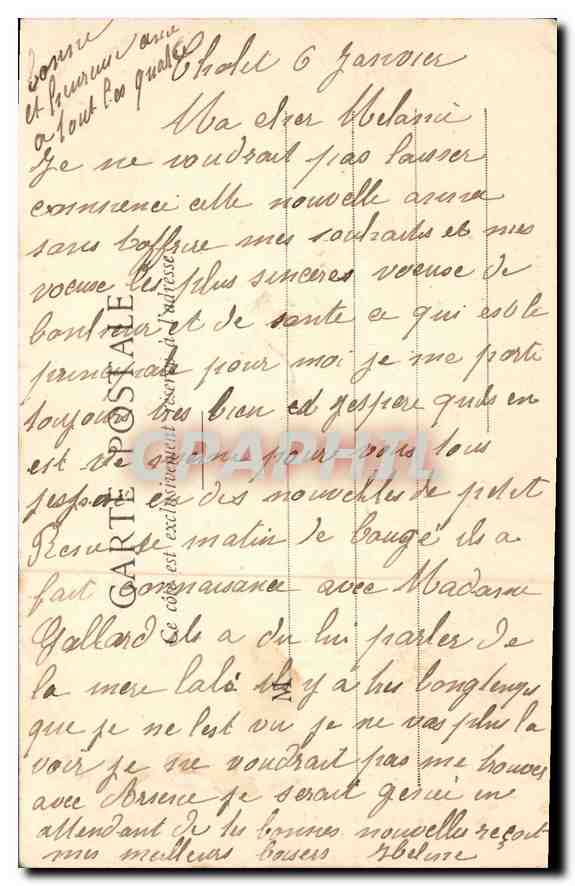 bonne
et heureuse année
a tout les quatre
Cholet 6 Janvier
Ma cher Melanie
Je ne voudrait pas laisser
commencé cette nouvelle anné
sans t'offrire mes souhaits et mes
voeuse les plus sinceres voeuse de
bonheur et de santé ce qui est le
principale pour moi je me porte
toujours tres bien et j'espere quils en
est de meme pour vous tous
des nouvelles de petit
René se matin de Baugé ils a
fait connaisance avec Madame
Gallard ils a du lui parler de
la mere lalé il y a tres longtemps
que je ne lest vu je ne vas plus la
voir je ne voudrait pas me trouver
avec Arsene je serait gené en
attendant de tes bonnes nouvelles reçoit
mes meilleurs baisers Helene
CARTE POSTALE
Ce côté est exclusivement réservé à l'adresse
M
CPAPHIL